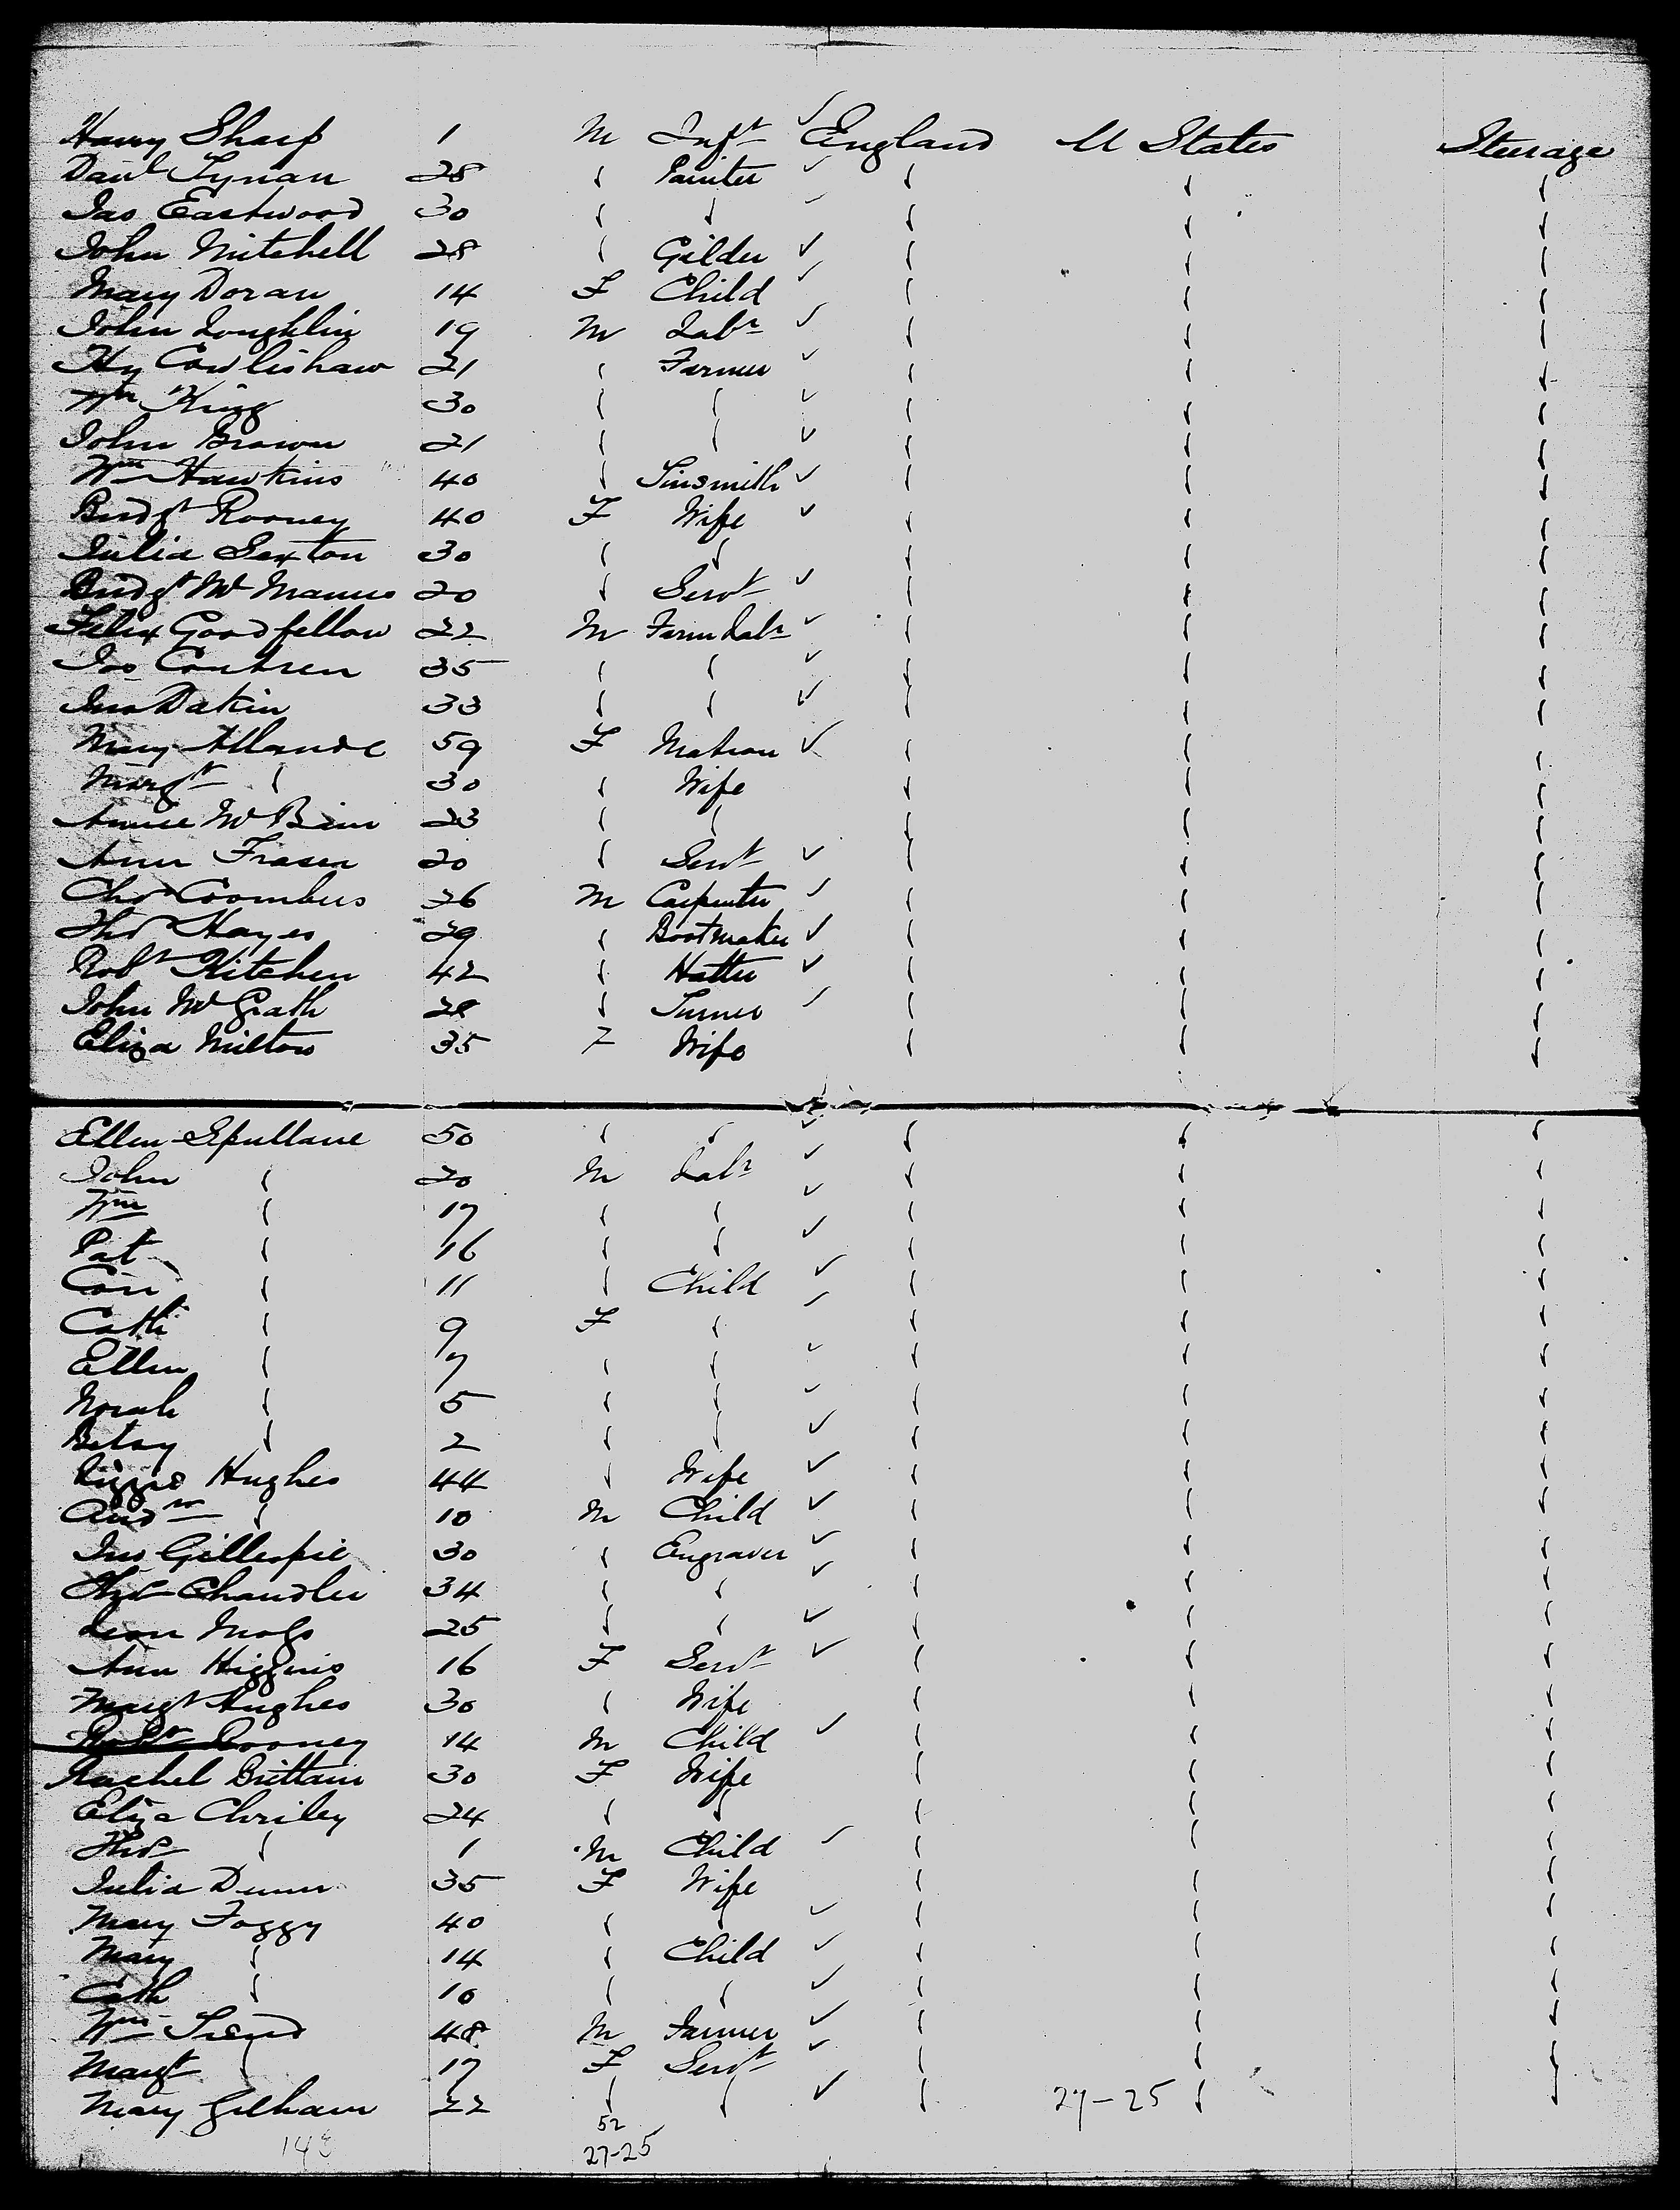 Harry Sharp 1 M Inft England U States Steerage
Danl Lynan 28 Painter
Jas Eastwood 30
John Mitchell 28 Gilder
Mary Doran 14 F Child
John Loughlin 19 M Labr
Hy Cowlishaw 21 Farmer
Wm King 30
John Brown 21
Wm Hawkins 40 Tinsmith
Bridgt Rooney 40 F Wife
Julia Sexton 30
Bridgt McManus 20 Servt
Felix Goodfellow 22 M Farm Labr
Jos 35
Jno Dakin 33
Mary 59 F Matron
Margt 30 Wife
Annie McBain 23
Ann Fraser 20 Servt
Chs Coombes 26 M Carpenter
Ths Hayes 29 Bootmaker
Robt Kitchen 42 Hatter
John McGrath 28 Turner
Eliza Milton 35 F Wife
Ellen Spullane 50
John 20 M Labr
Wm 17
Pat 16
Con 11 Child
Cath 9 F
Ellen 7
Norah 5
Betsy 2
Lizzie Hughes 44 Wife
Andw 10 M Child
Jno Gillespie 30 Engraver
Ths Chandler 34
Leon 25
Ann Higgins 16 F Servt
Margt Hughes 30 Wife
Robt Rooney 14 M Child
Rachel Brittain 30 F Wife
Eliza Chriley 24
Ths 1 M Child
Julia Dunn 35 F Wife
Mary Foggy 40
Mary 14 Child
Cath 10
Wm 48 M Farmer
Margt 17 F Servt
Mary Gelham 22 27-25
52
27-25